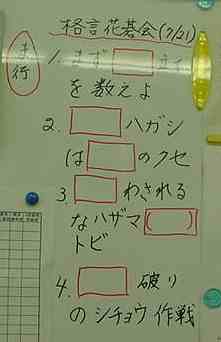 格言花碁会(7/21)
ま行
1. まず □ テイ
を数えよ
2. □ ハガシ
は □ のクセ
3. □ わされる
なハザマ(　)
トビ
4. □ 破り
のシチョウ作戦